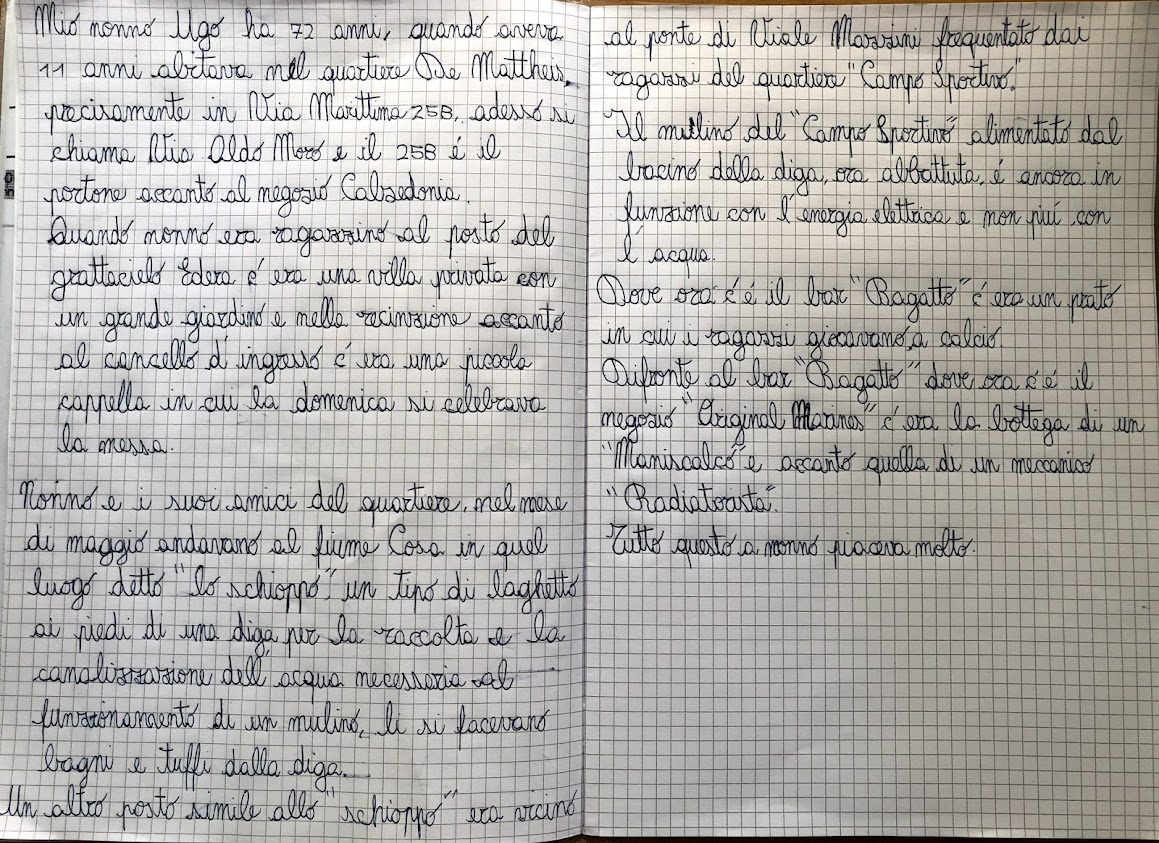 Mio nonno Ugo ha 72 anni, quando aveva
11 anni abitava nel quartiere De Mattheis,
precisamente in Via Marittima 258, adesso si
chiama Via Aldo Moro e il 258 é il
portone accanto al negozio Calzedonia.
Quando nonno era ragazzino al posto del
grattacielo Edera c'era una villa privata con
un grande giardino e nella recinzione accanto
al cancello d'ingresso c'era una piccola
cappella in cui la domenica si celebrava
la messa.
Nonno e i suoi amici del quartiere, nel mese
di maggio andavano al fiume Cosa in quel
luogo detto "lo schioppo", un tipo di laghetto
ai piedi di una diga per la raccolta e la
canalizzazione dell'acqua necessaria al
funzionamento di un mulino, li si facevano
bagni e tuffi dalla diga.
Un altro posto simile allo "schioppo" era vicino
al ponte di Viale Mazzini frequentato dai
ragazzi del quartiere "Campo Sportivo".
Il mulino del "Campo Sportivo" alimentato dal
bacino della diga, ora abbattuta, é ancora in
funzione con l'energia elettrica e non piú con
l'acqua.
Dove ora c'é il bar "Bagatto" c'era un prato
in cui i ragazzi giocavano a calcio.
Difronte al bar "Bagatto" dove ora c'é il
negozio "Original Marines" c'era la bottega di un
"Maniscalco" e accanto quella di un meccanico
"Radiatorista".
Tutto questo a nonno piaceva molto.